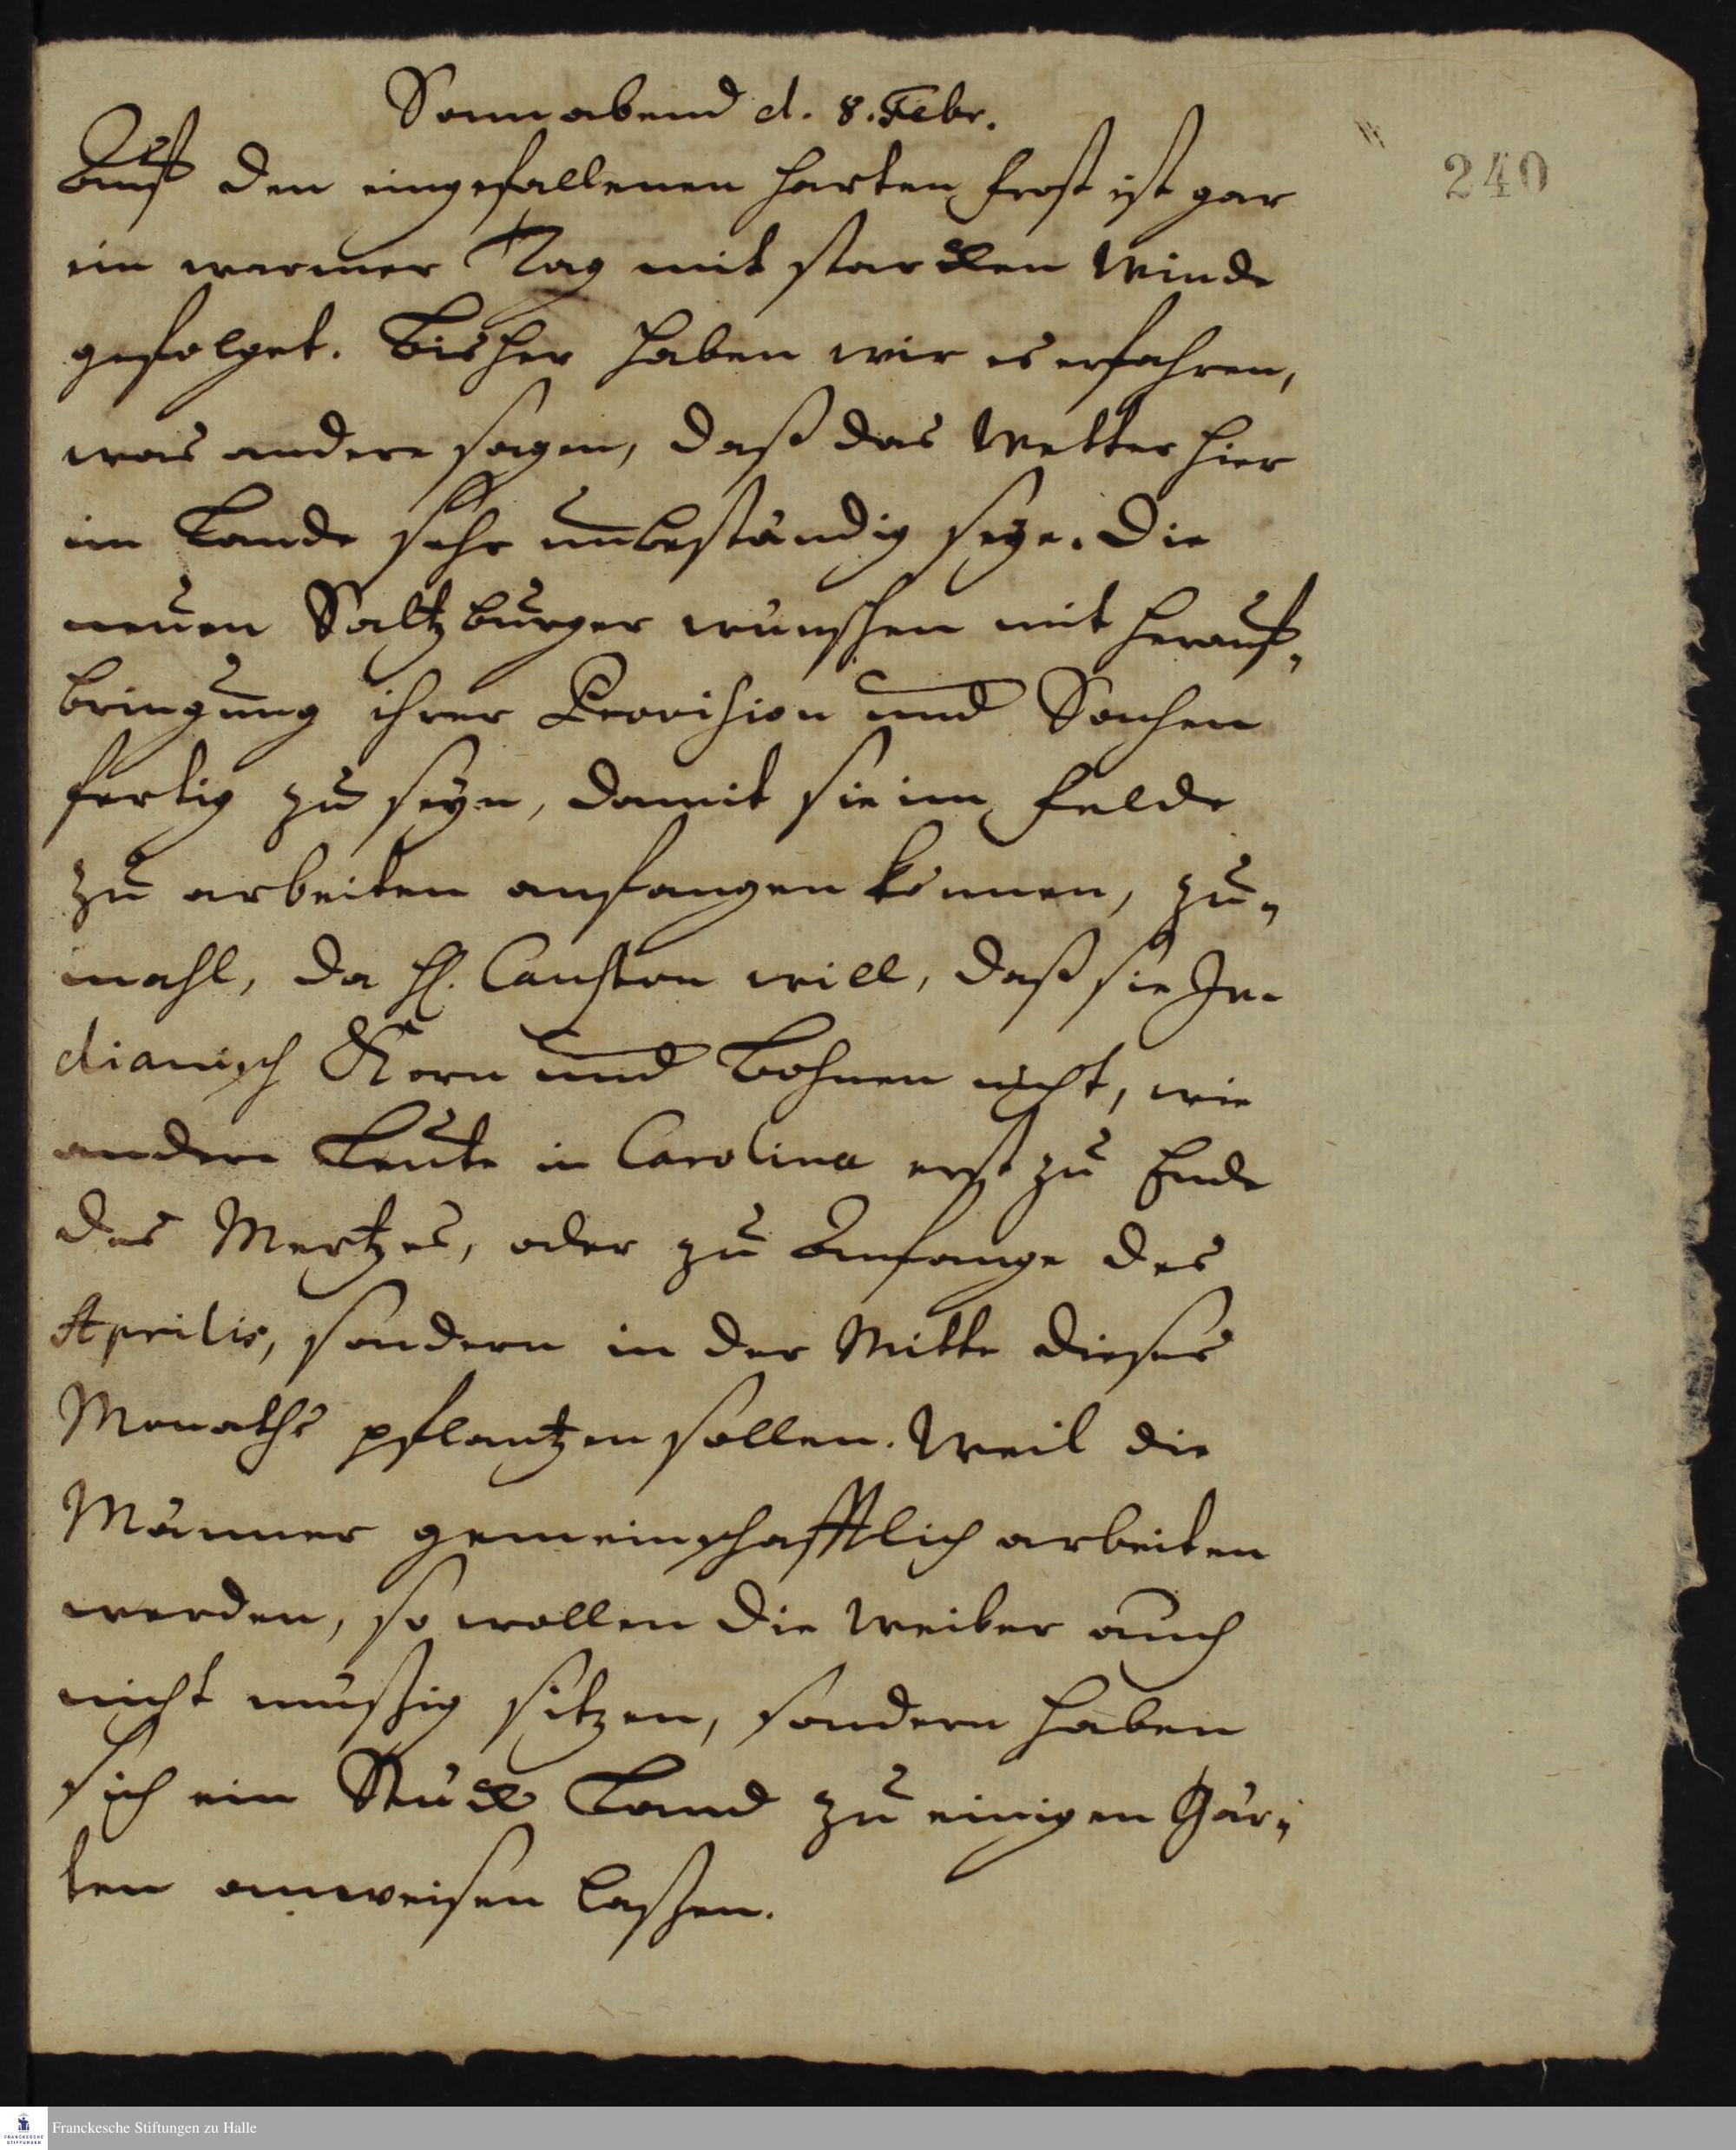 Sonnabend d. 8. Febr.
240
Auf den eingefallenen harten Frost ist gar
ein warmer Tag mit starcken Winde
gefolget. Bisher haben wir es erfahren,
was andere sagen, daß das Wetter hier
im Lande sehr unbeständig seye. Die
neuen Saltzburger wünschen mit Herauf-
bringung ihrer Provision und Sachen
fertig zu seyn, damit sie im Felde
zu arbeiten anfangen können, zu-
mahl, da H. Causton will, daß sie In-
dianisch Korn und Bohnen nicht, wie
andere Leute in Carolina erst zu Ende
des Mertzes, oder zu Anfange des
Aprilis, sondern in der Mitte dieses
Monaths pflantzen sollen. Weil die
Männer gemeinschafftlich arbeiten
werden, so wollen die Weiber auch
nicht müßig sitzen, sondern haben
sich ein Stück Land zu einigen Gär-
ten anweisen laßen.
Franckesche Stiftungen zu Halle
FRANCKESCHE
STIFTUNGEN